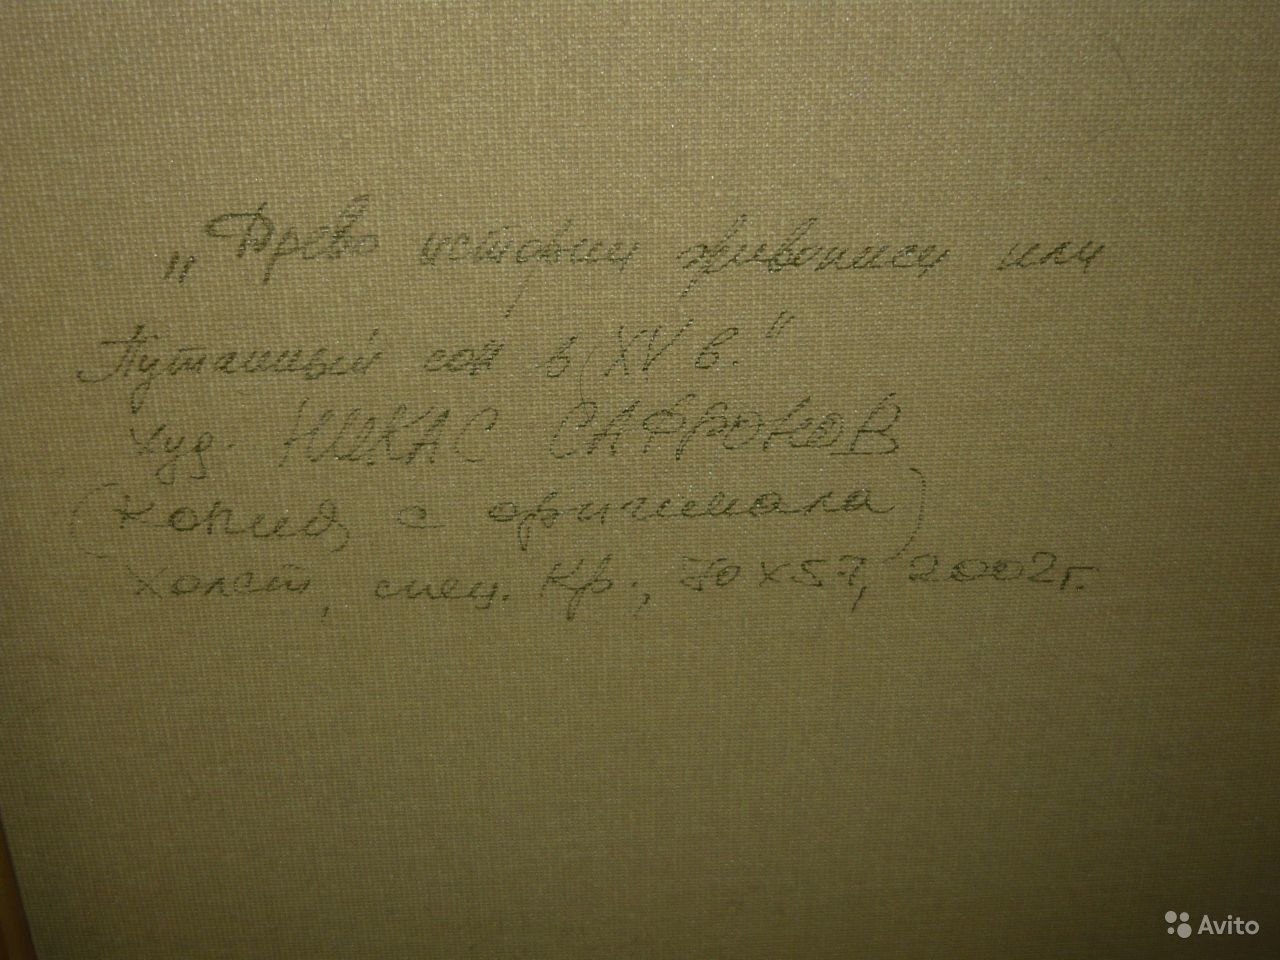 „Древо истории живописи или
Путанный сон в XV в."
худ. НИКАС САФРОНОВ
(копия с оригинала)
холст, спец. кр., 70х57, 2002г.
Avito